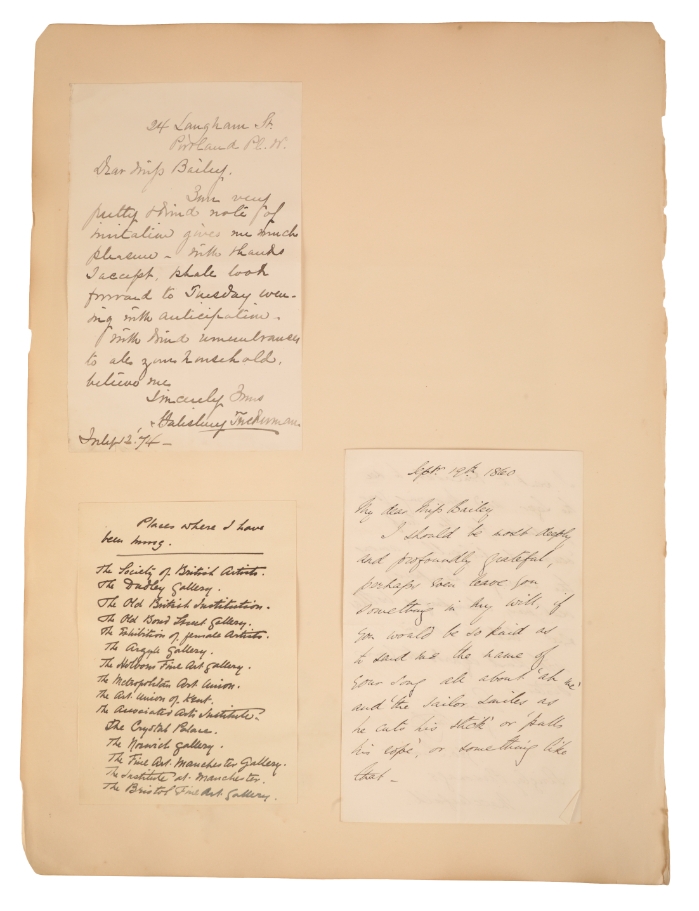 24 Langham St.
Portland Pl. W.
Dear Miss Bailey.
Your very
pretty & kind note of
invitation gives me much
pleasure – with thanks
I accept, shall look
forward to Tuesday even-
ing with anticipation.
With kind remembrances
to all your household,
believe me
Sincerely Yours
Salisbury Tuckerman
July 12. '74 –
Places where I have
been hung.
The Society of British Artists.
The Dudley Gallery.
The Old British Institution.
The Old Bond Street Gallery.
The Exhibition of female Artists.
The Argyle Gallery.
The Holborn Fine Art Gallery.
The Metropolitan Art Union.
The Art Union of Kent.
The Associated Arts Institute.
The Crystal Palace.
The Norwich Gallery.
The Fine Art Manchester Gallery.
The Institute at Manchester.
The Bristol Fine Art Gallery.
Sept. 19th 1860
My dear Miss Bailey
I should be most deeply
and profoundly grateful,
perhaps even leave you
something in my will, if
you would be so kind as
to send me the name of
your song all about 'ah me'
and 'the sailor smiles as
he cuts his stick' or 'pulls
his rope', or something like
that –